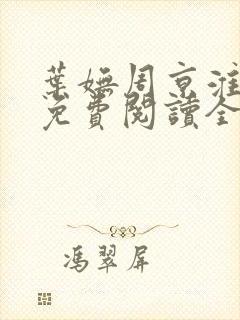 葉嫵周京淮
免費閱讀全
馮翠屏